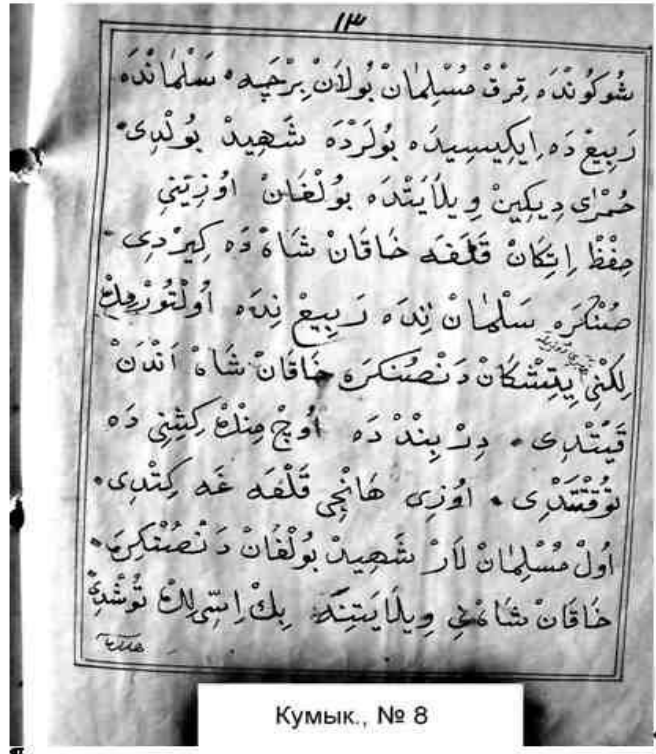 ١٣
شُوكُونْدَه قِرْقْ مُسْلِمَانْ بُولاَنْ بِرْجَيِه سَلْمَانْدَه
رَبِيعْ دَه اِيكِيسِيدَه بُولَرْدَه شَهِيدْ بُولْدِى
حُمْرَاى دِيكِينْ وِيلاَيَتْدَه بُولْغَانْ اوُزِيْنِي
حِفْظْ اِتِكَانْ قَلَفَه خَاقَانْ شَاهْ دَه كِيرْدِى
صُنْكَرَه سَلْمَانْ نِدَه رَبِيعْ نِدَه اُولْتُورْمِكْ
لِكْنِي يِتِشْكَانْ دَنْصُنكَرَه خَاقَانْ شَاهْ اَنْدَنْ
قَيْتْدِى دِرْبِنْدْ دَه اُوچْ مِنْكْ كِشِنِي دَه
تُوقْتَتْدِى اوُزِى هَانْجِي قَلْفَه غَه كِتْدِى
اُولْ مُسْلِمَانْ لاَرْ شَهِيدْ بُولْغَانْ دَنْصُنْكِرَه
خَاقَانْ شَاهْنِي وِيلاَيَتِنَه بِكْ اِسِّى لِكْ تُوشْدِى
Кумык., № 8